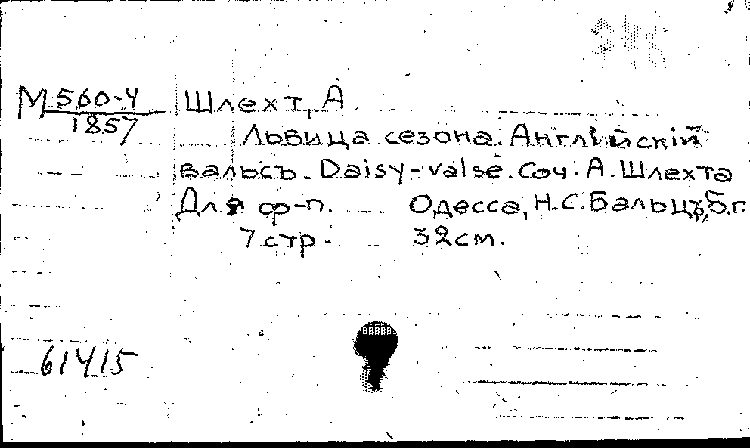 М 560-4 Шлехт, А
1857
Львица сезона. Англiйскiй
вальсъ. Daisy-valse. Соч. А. Шлехта
Для ф-п. Одесса, Н.С. Бальцъ, б.г.
7 стр. 32 см.
61415